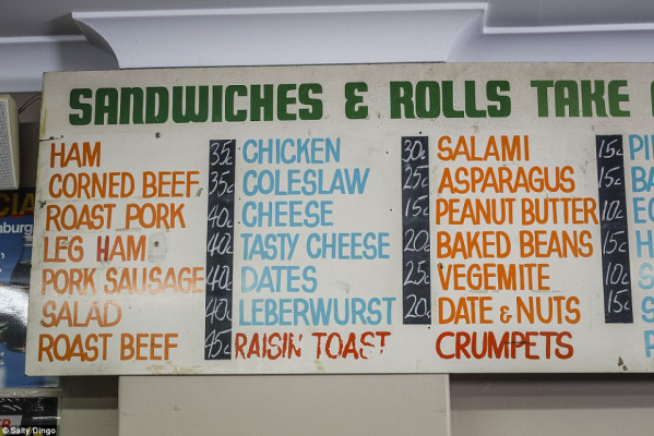 SANDWICHES & ROLLS TAKE
HAM 35c CHICKEN 30c SALAMI 15c
CORNED BEEF 35c COLESLAW 25c ASPARAGUS 15c
ROAST PORK 40c CHEESE 15c PEANUT BUTTER 10c
LEG HAM 40c TASTY CHEESE 20c BAKED BEANS 15c
PORK SAUSAGE 40c DATES 25c VEGEMITE 10c
SALAD 40c LEBERWURST 20c DATE & NUTS 15c
ROAST BEEF 45c RAISIN TOAST CRUMPETS
© Salty Dingo